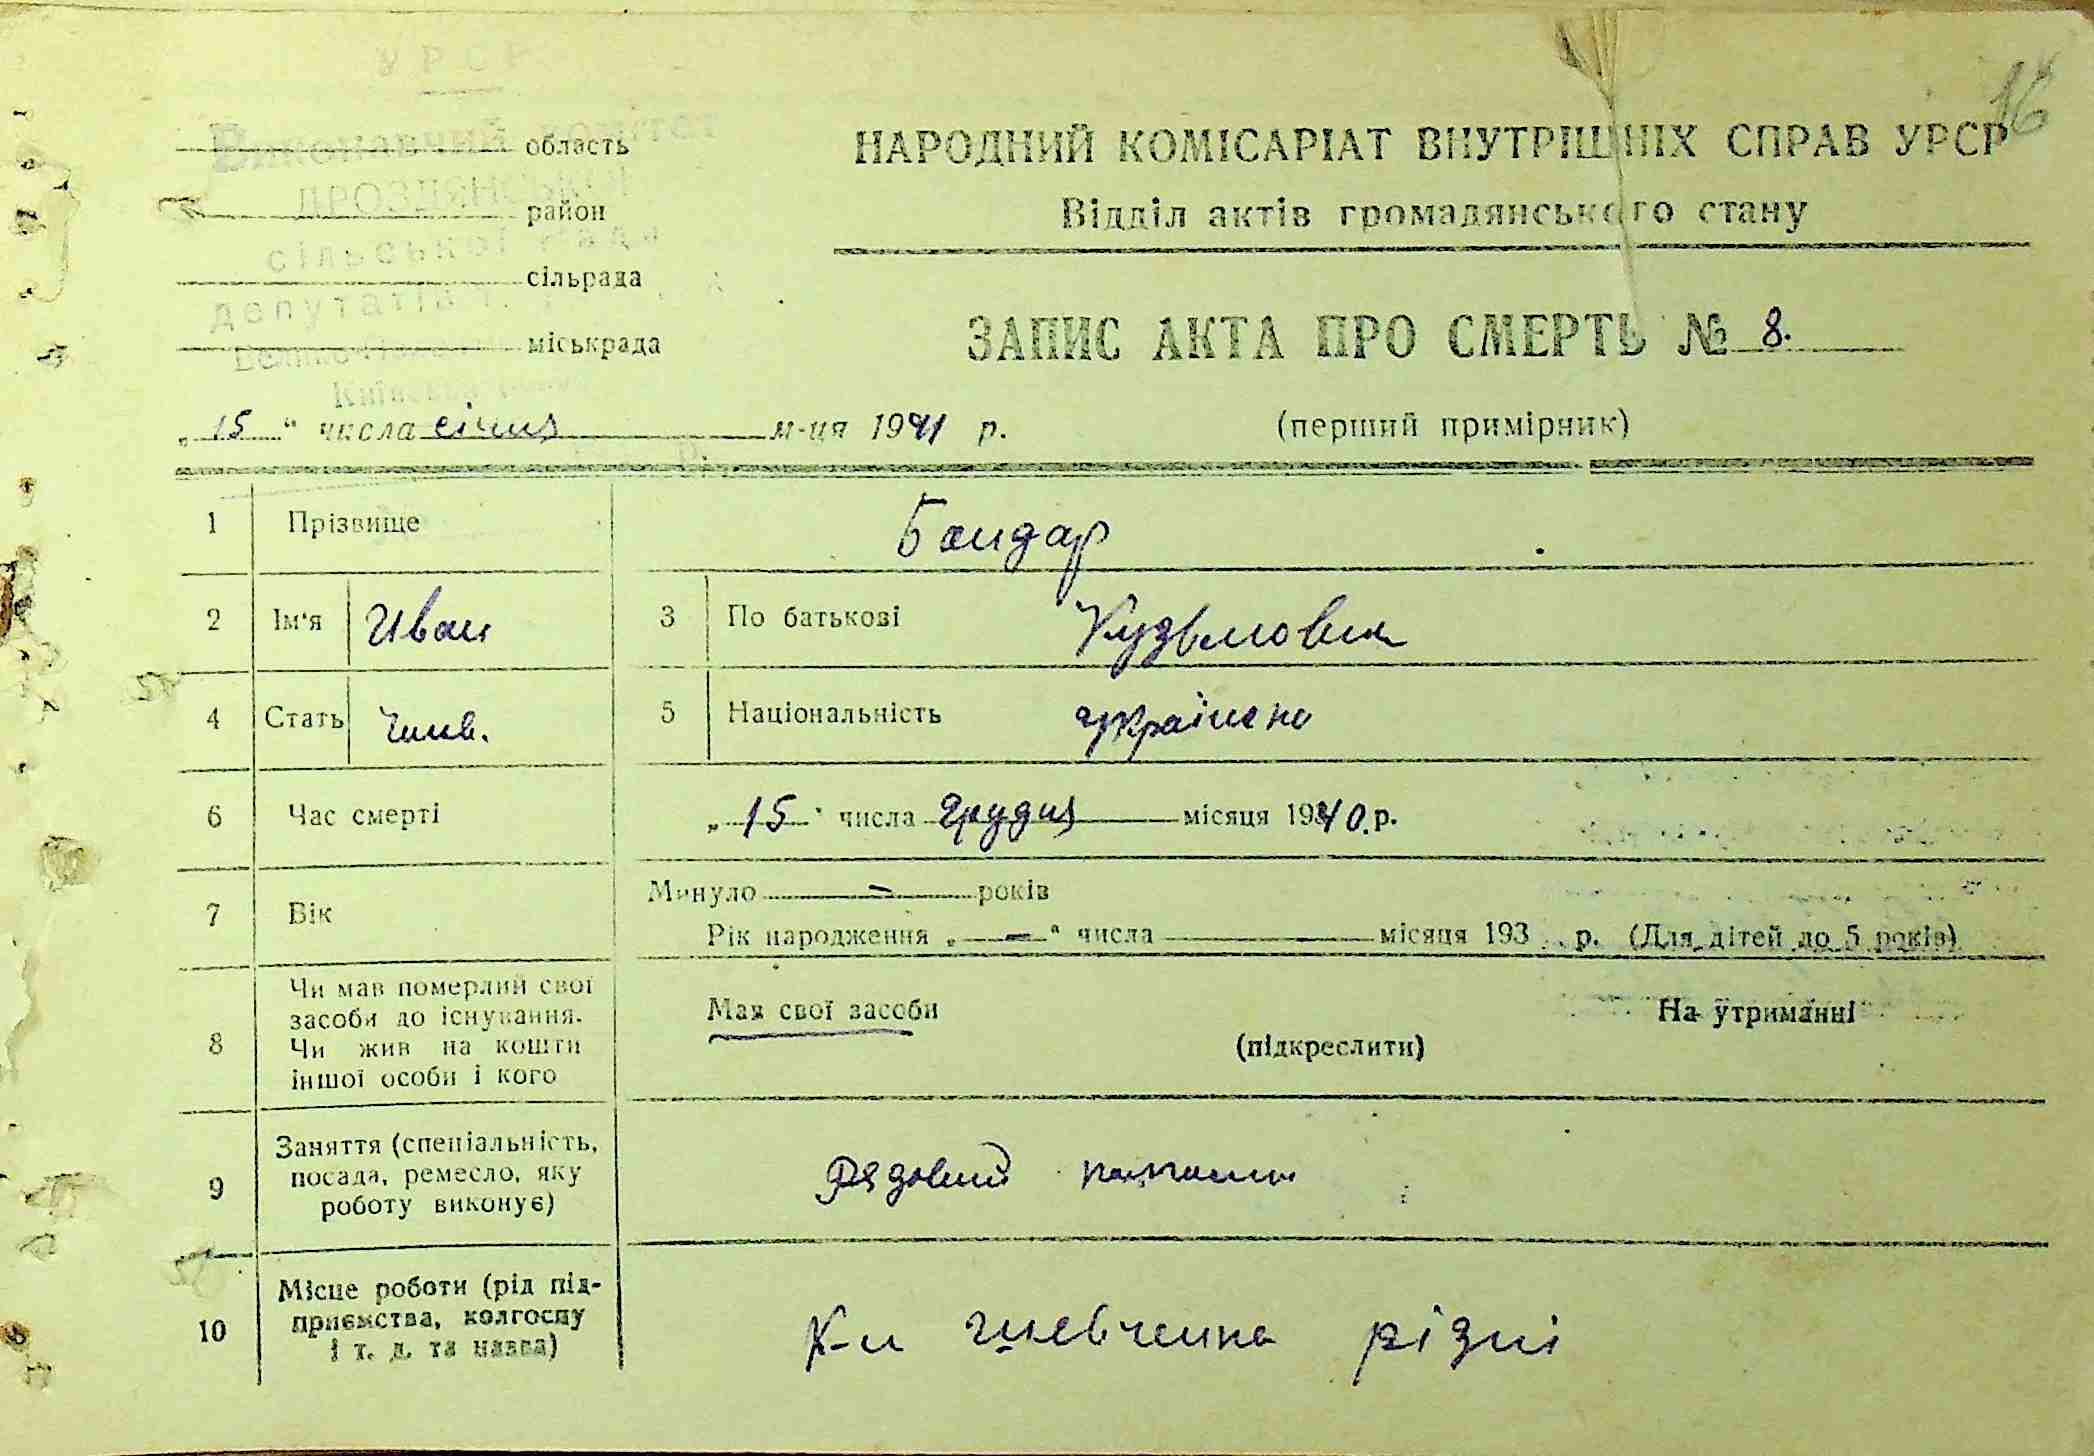 16
УРСР
Виконавчий комітет
область
ДРОЗДЯНСЬКОЇ
район
сільської Ради
сільрада
депутатів
міськрада
НАРОДНИЙ КОМІСАРІАТ ВНУТРІШНІХ СПРАВ УРСР
Відділ актів громадянського стану
ЗАПИС АКТА ПРО СМЕРТЬ № 8.
„15“ числа січня м-ця 1941 р.
(перший примірник)
1 Прізвище Бондар
2 Ім'я Иван 3 По батькові Кузьмович
4 Стать чолов. 5 Національність українець
6 Час смерті „15“ числа грудня місяця 1940.р.
7 Вік Минуло — років
Рік народження „—“ числа — місяця 193 р. (Для дітей до 5 років)
8 Чи мав померлий свої засоби до існування. Чи жив на кошти іншої особи і кого
Мав свої засоби На утриманні
(підкреслити)
9 Заняття (спеціальність, посада, ремесло, яку роботу виконує) Рядовий
10 Місце роботи (рід підприємства, колгоспу і т. д. та назва) К-п Шевченка різні